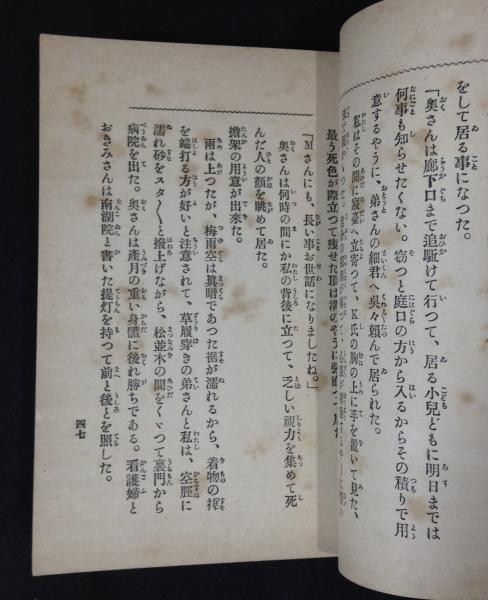 をして居る事になつた。
「奥さんは廊下口まで追駈けて行つて、居る小兒どもに明日までは
何事も知らせたくない。窃つと庭口の方から入るからその積りで用
意するやうに、弟さんの細君へ呉々賴んで居られた。
私はその間に寢臺へ立寄つて、K氏の胸の上に手を置いて見た、
最う死色が際立つて痩せた頂は
「Mさんにも、長い事お世話になりましたね。」
奥さんは何時の間にか私の背後に立つて、乏しい視力を集めて死
んだ人の顔を眺めて居た。
擔架の用意が出來た。
雨は上つたが、梅雨空は眞暗であつた裾が濡れるから、着物の裾
を端打る方が好いと注意されて、草履穿きの弟さんと私は、空脛に
濡れ砂をスタ〱と撥上げながら、松並木の間をくゞつて裏門から
病院を出た。奥さんは產月の重い身體に後れ勝ちである。看護婦と
おきみさんは南湖院と書いた提灯を持つて前と後とを照した。
四七